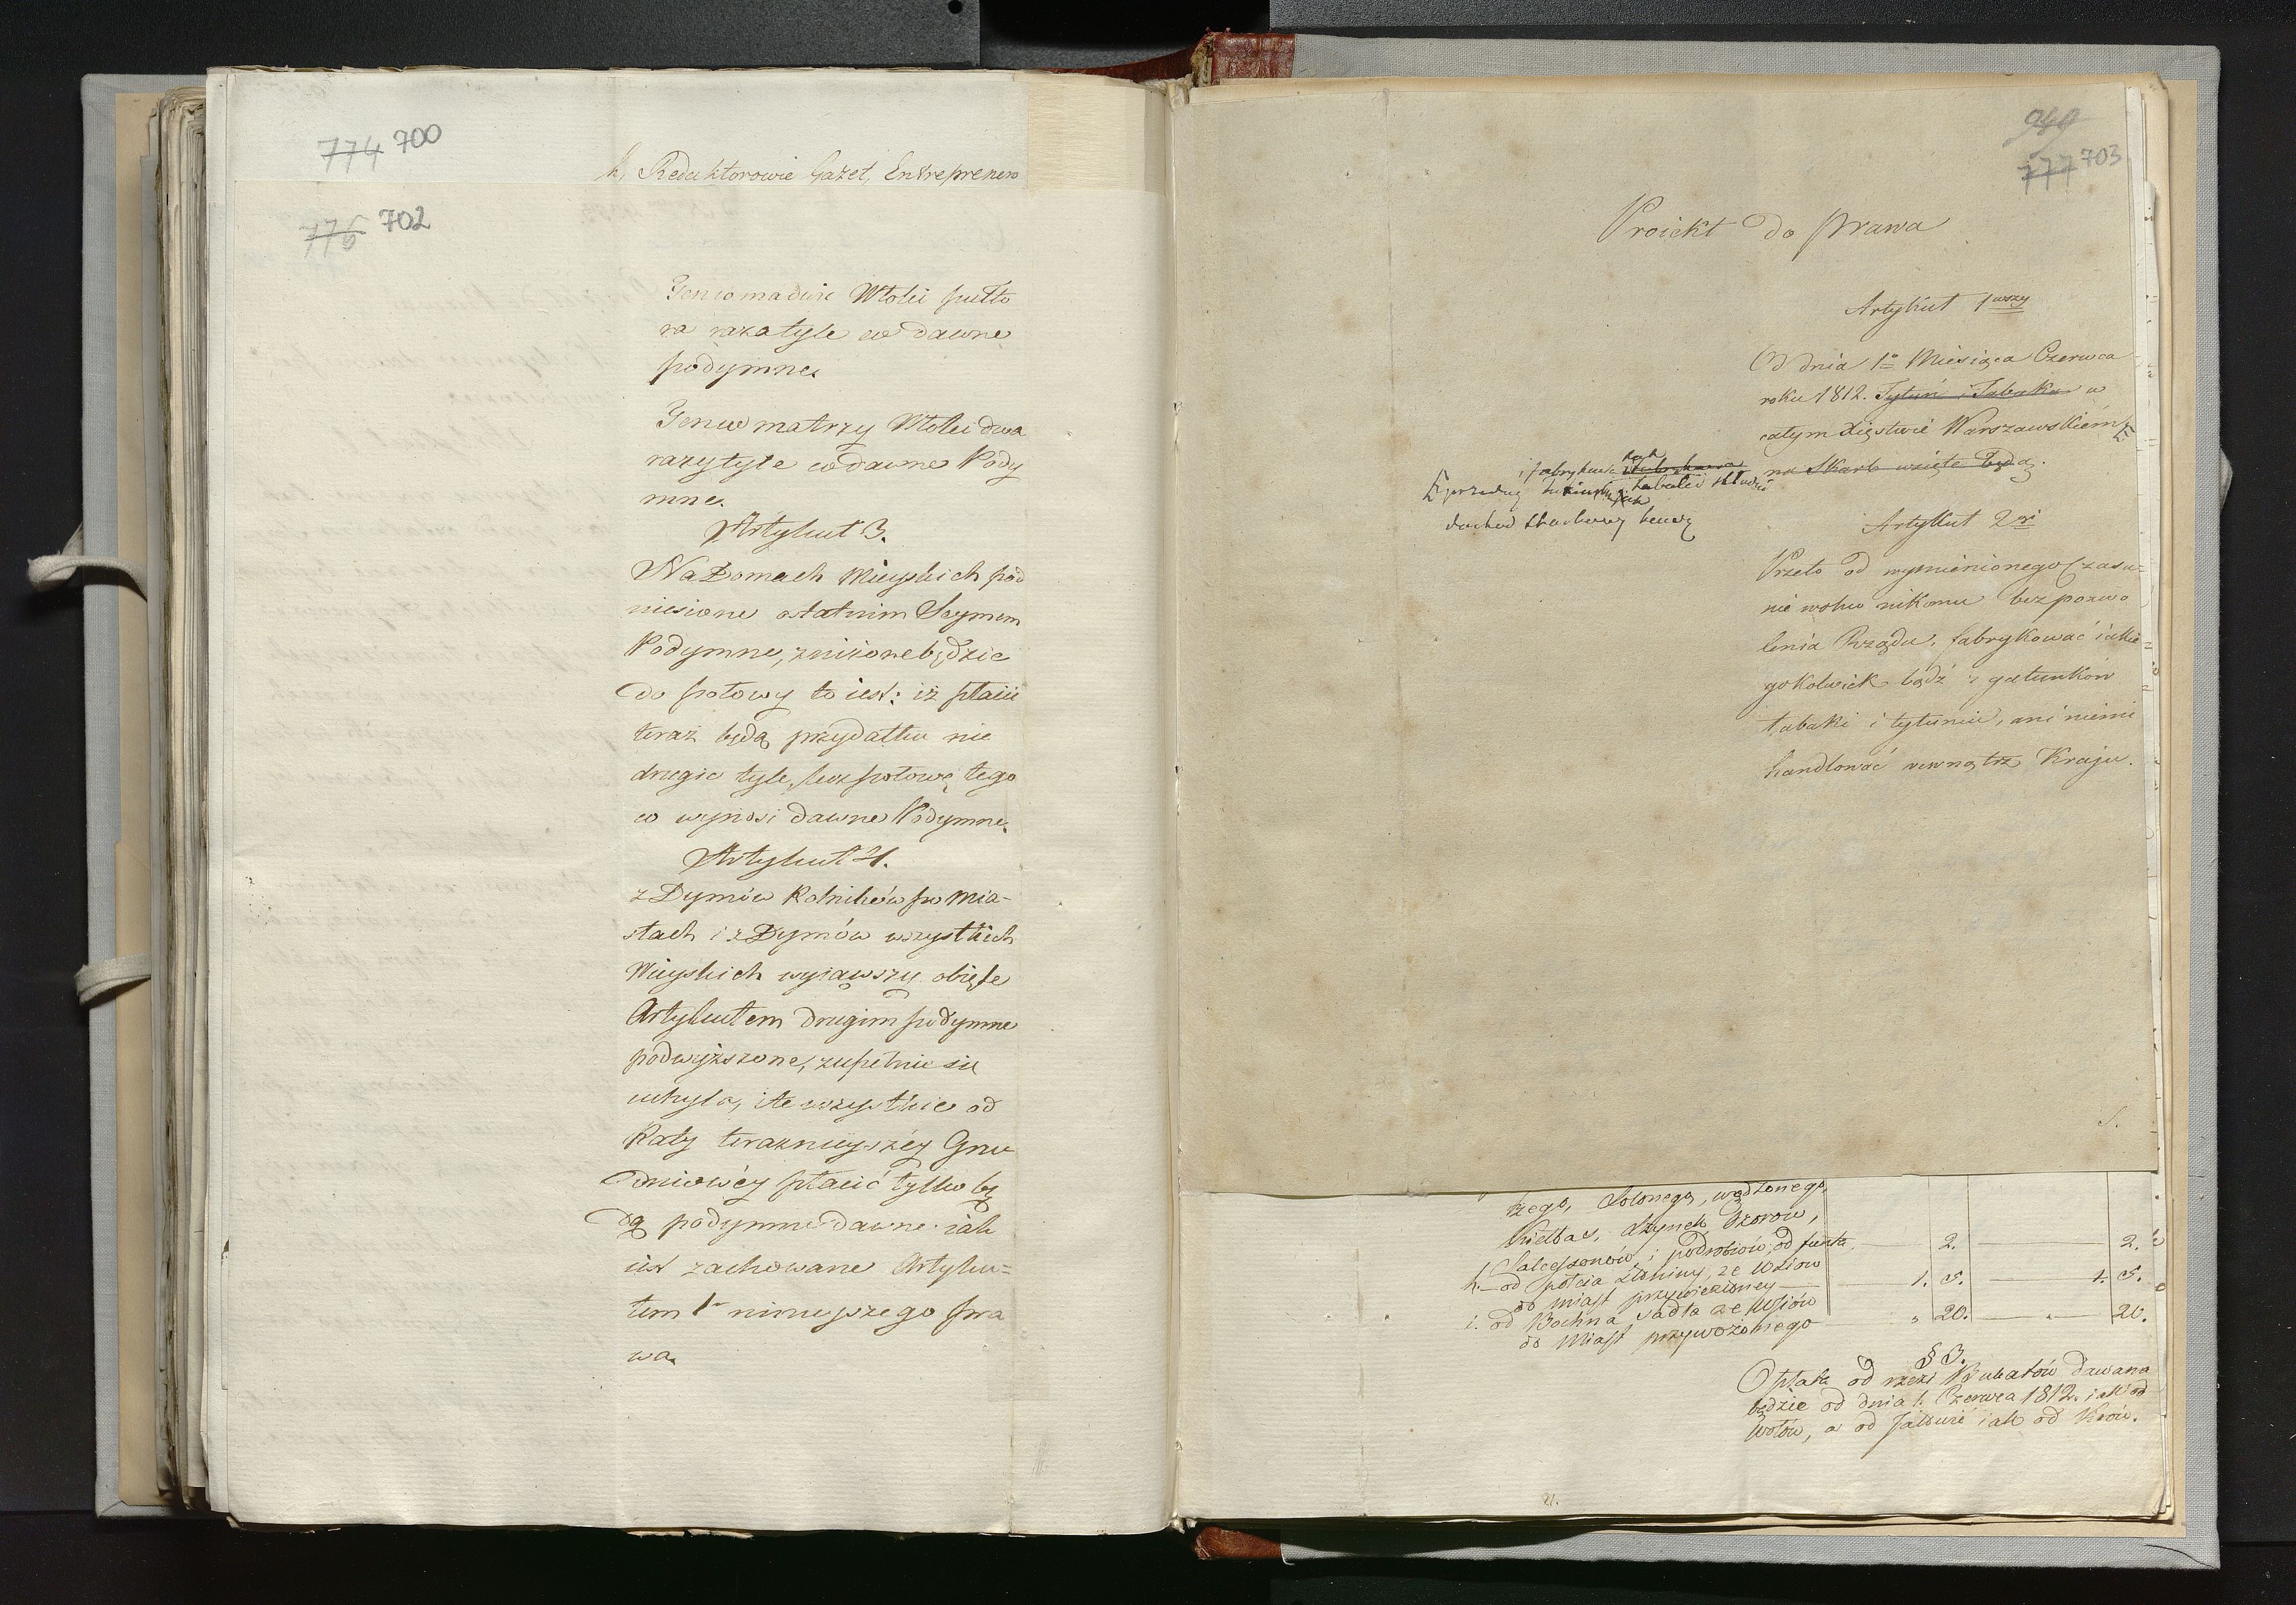 774 700
k, Redaktorowie Gazet, Entreprener
776 702
Ten co ma dwie Włoki pułto
ra raza tyle co dawne
podymne.
Ten co ma trzy Włoki dwa
razy tyle co dawne Pody
mne.
Artykuł 3.
Na Domach Mieyskich pod
niesione ostatnim Seymem
Podymne, zniżone będzie
do połowy to iest: iż płacić
teraz będą przydatku nie
drugie tyle, lecz połowę tego
co wynosi dawne Podymne.
Artykuł 4.
z Dymów Rolników po Mia-
stach i z Dymów wszystkich
Wieyskich wyiąwszy obięte
Artykułem drugim podymne
podwyższone, zupełnie się
uchyla, i te wszystkie od
Raty teraznieyszéy Gru-
dniowéy płacić tylko bę
dą podymne dawne iak
iest zachowane Artyku=
łem 1m ninieyszego pra
wa.
949
777 703
Proiekt do prawa
Artykuł 1wszy
Od dnia 1o Miesiąca Czerwca
roku 1812. Tytuń i Tabaka w
całym Xięstwie Warszawskiém
na Skarb wzięte będą.
i fabrykacya
tabaki
dochod skarbowy
Artykuł 2gi
Przeto od wymienionego czasu=
nie wolno nikomu bez pozwo
lenia Rządu, fabrykować iakie
gokolwiek bądź z gatunków
tabaki i tytuniu, ani niemi
handlować wewnątrz Kraju.
rzego, Solonego, wędzonego,
Kiełbas, Szynek Ozorów,
Salcessonów, i podrobiów, od funta 2. 2.
h. od połcia Słoniny, ze Wsiów
do miast przywiezioney 1. 5. 1. 5.
i. od Bochna Sadła ze Wsiów
do Miast przywożonego " 20. " 20.
§ 3.
Opłata od rzezi Buhaiów dawana
będzie od dnia 1. Czerwca 1812. iak od
Wołów, a od Jałowic iak od Krów.